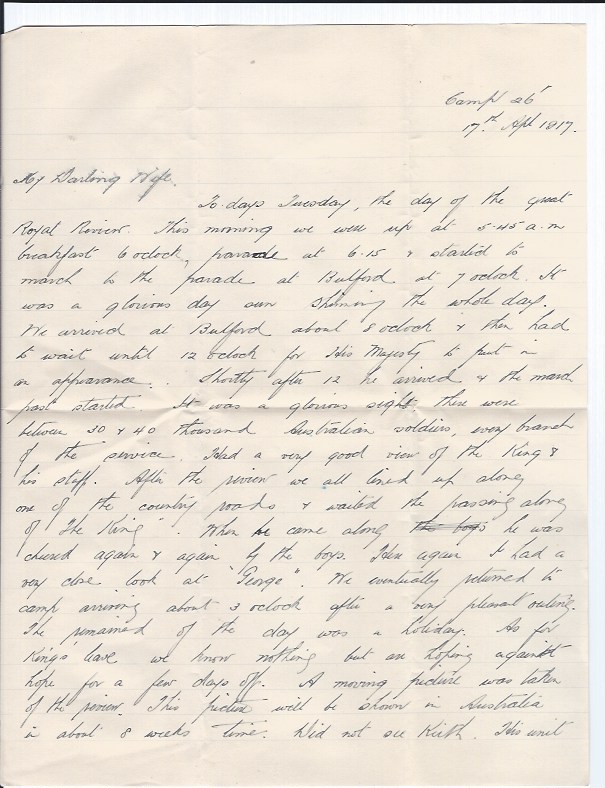 Camp 26
17th Apl 1917.
My Darling Wife.
To-days Tuesday, the day of the great
Royal Review. This morning we were up at 5.45 a.m
breakfast 6 oclock, parade at 6.15 & started to
march to the parade at Bulford at 7 oclock. It
was a glorious day sun shining the whole day.
We arrived at Bulford about 8 oclock & then had
to wait until 12 oclock for His Majesty to put in
an appearance. Shortly after 12 he arrived & the march
past started. It was a glorious sight there were
between 30 & 40 thousand Australian soldiers, every branch
of the service. Had a very good view of the King &
his staff. After the review we all lined up along
one of the country roads & waited the passing along
of "The King". When he came along the boys he was
cheered again & again by the boys. Here again I had a
very close look at "George". We eventually returned to
camp arriving about 3 oclock after a very pleasant outing.
The remained of the day was a holiday. As for
King's leave we know nothing but are hoping against
hope for a few days off. A moving picture was taken
of the review. This picture will be shown in Australia
in about 8 weeks time. Did not see Kieth. His unit